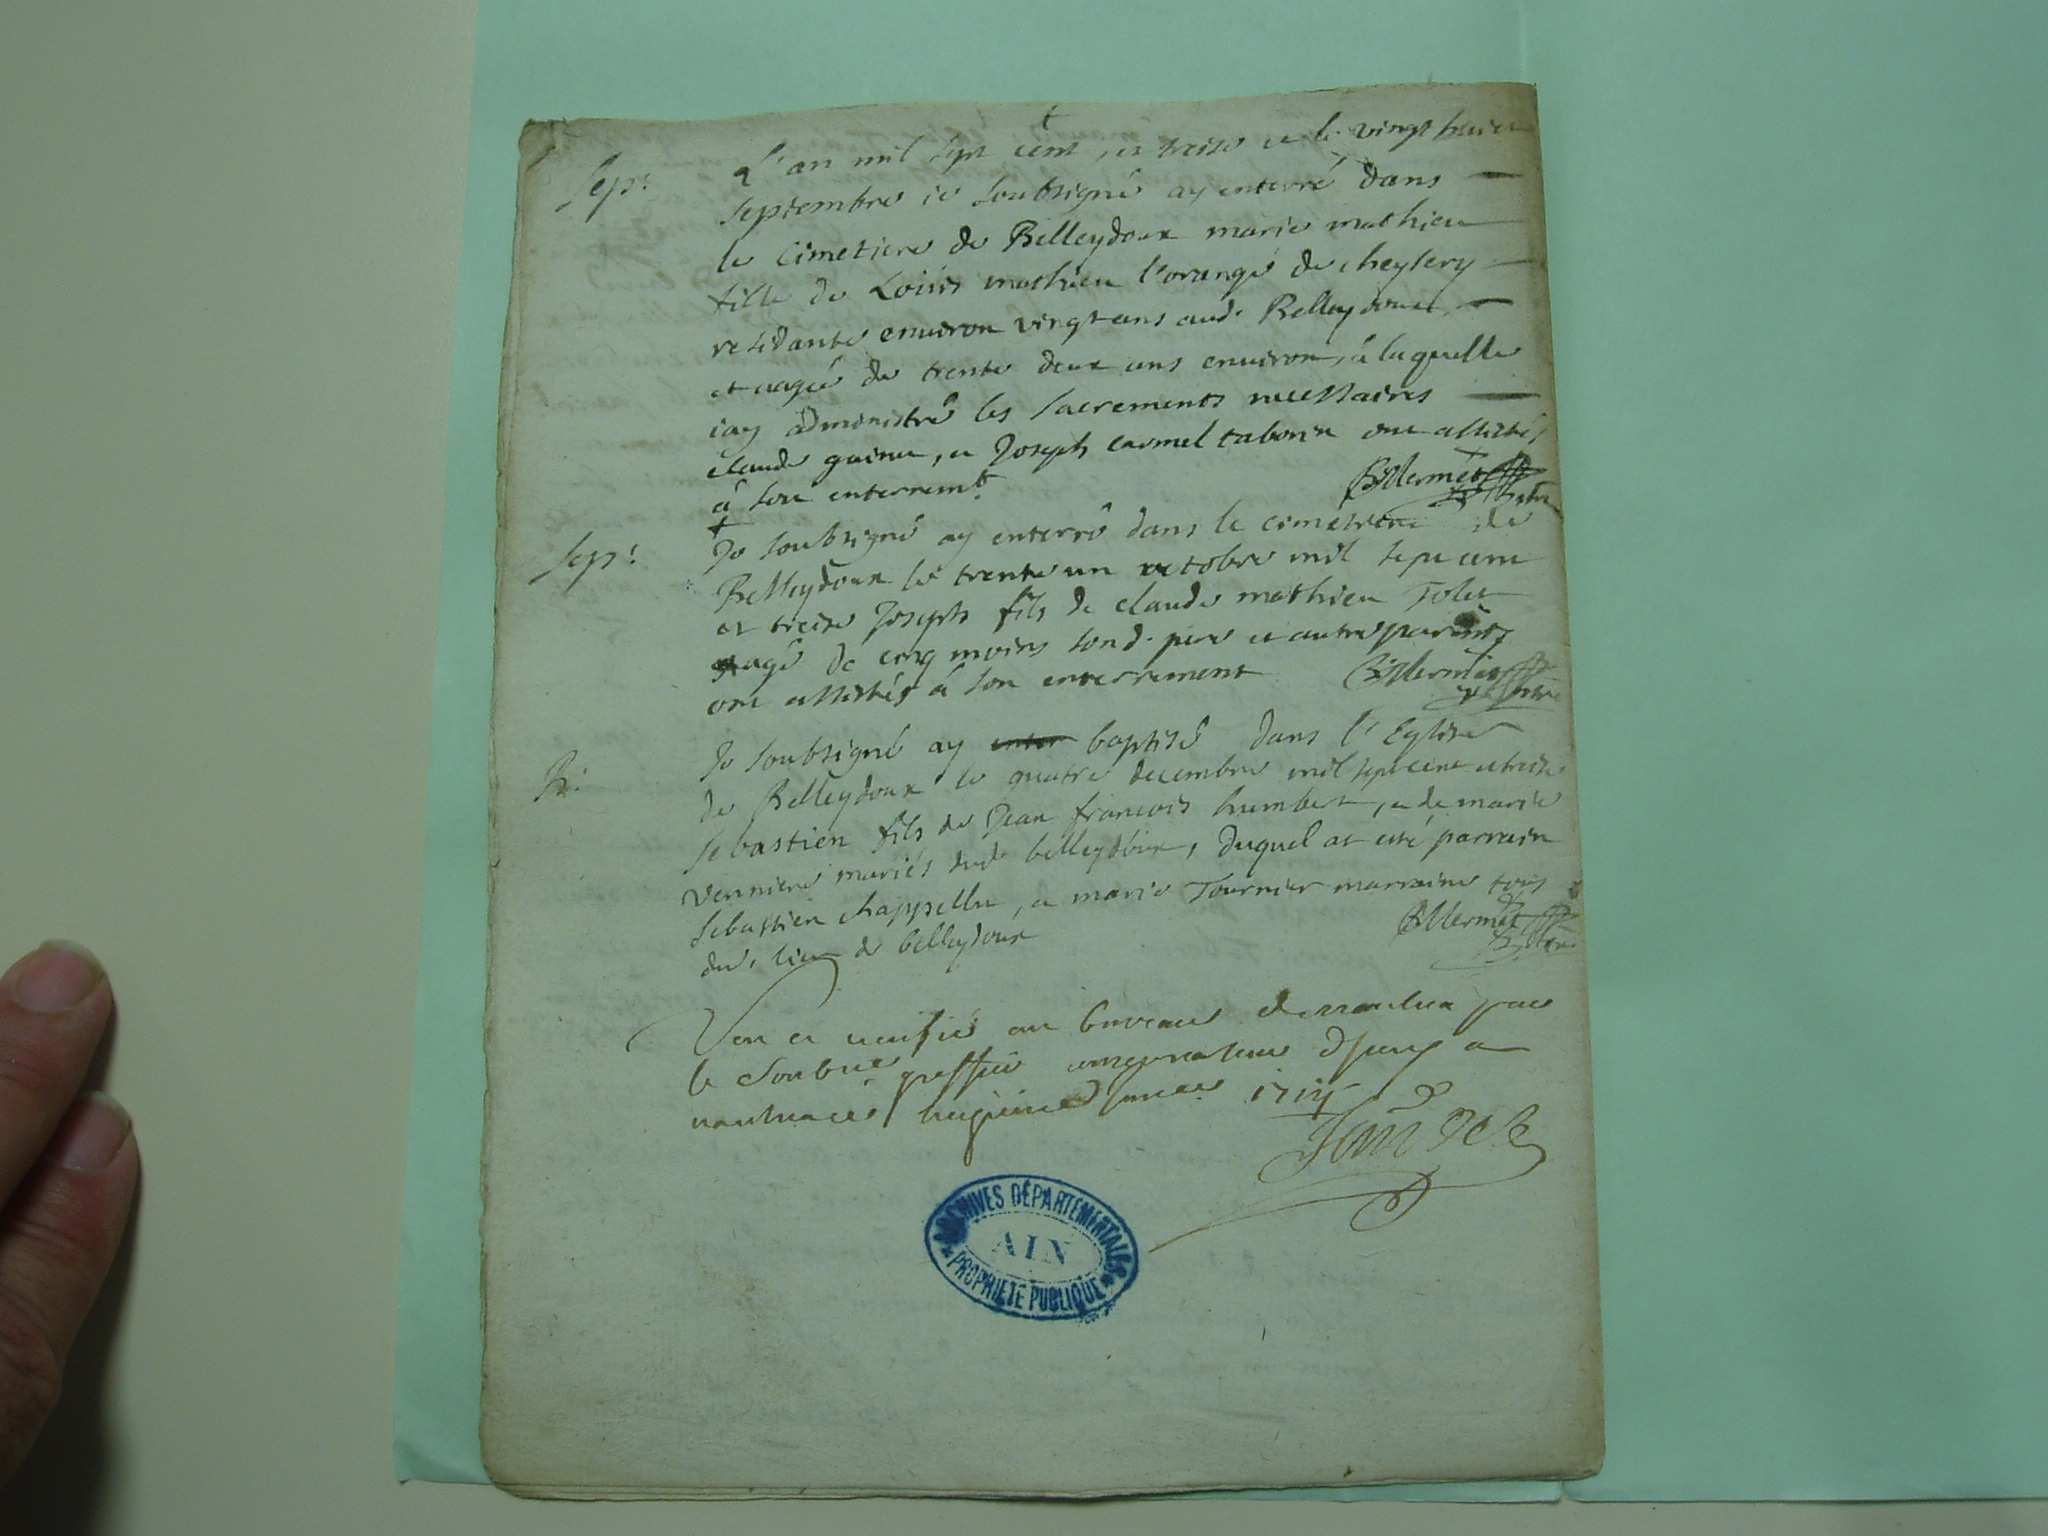 †
Sep: L'an mil sept cent et treise et le vingt huict
septembre ie soubsigné ay enterré dans
le cimetiere de Belleydoux marie mathieu
fille de Loüis mathieu l'orange de cheylery
residante environ vingt ans aud. Belleydoux
et aagée de trente deux ans environ, à laquelle
iay administré les sacrements necessaires
claude guinu, et Joseph carmel tabourn ont assistés
à son enterremt.
BMermet
†
Sep: Je soubsigné ay enterré dans le cimetiere de
Belleydoux le trente un octobre mil sept cent
et treise Joseph fils de claude mathieu Tolet
agé de cinq moins sond. pere et autre parents
ont assistés à son enterrement
BMermet
B: Je soubsigné ay enter baptisé dans l'Eglise
de Belleydoux le quatre decembre mil sept cent et treise
sebastien fils de Jean françois humbert, et de marie
vernier mariés dud. belleydoux, duquel at esté parrain
sebastien chappellu, et marie Tournier marraine tous
dud. lieu de belleydoux
BMermet
Veu et veriffié au bureau de par
le Soubne greffier conservateur
1714
ARCHIVES DÉPARTEMENTALES
AIN
PROPRIÉTÉ PUBLIQUE